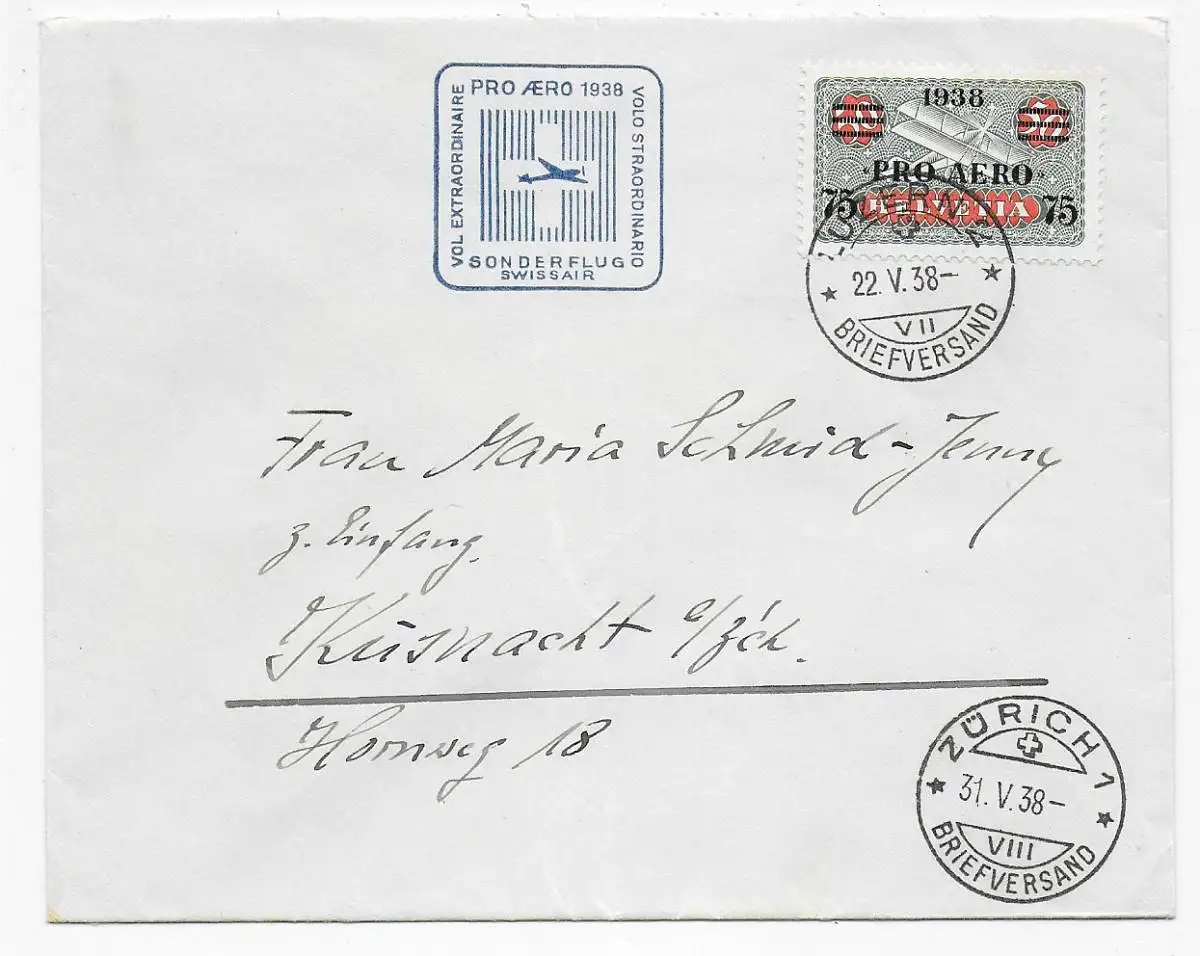 PRO ÆRO 1938
VOL EXTRAORDINAIRE
VOLO STRAORDINARIO
SONDERFLUG
SWISSAIR
1938
·PRO AERO·
75 HELVETIA 75
LUZERN
22.V.38–
VII
BRIEFVERSAND
Frau Maria Schmid-Jenny
z. Einfang.
Küsnacht a/Zch.
Hornweg 18
ZÜRICH 1
31.V.38–
VIII
BRIEFVERSAND